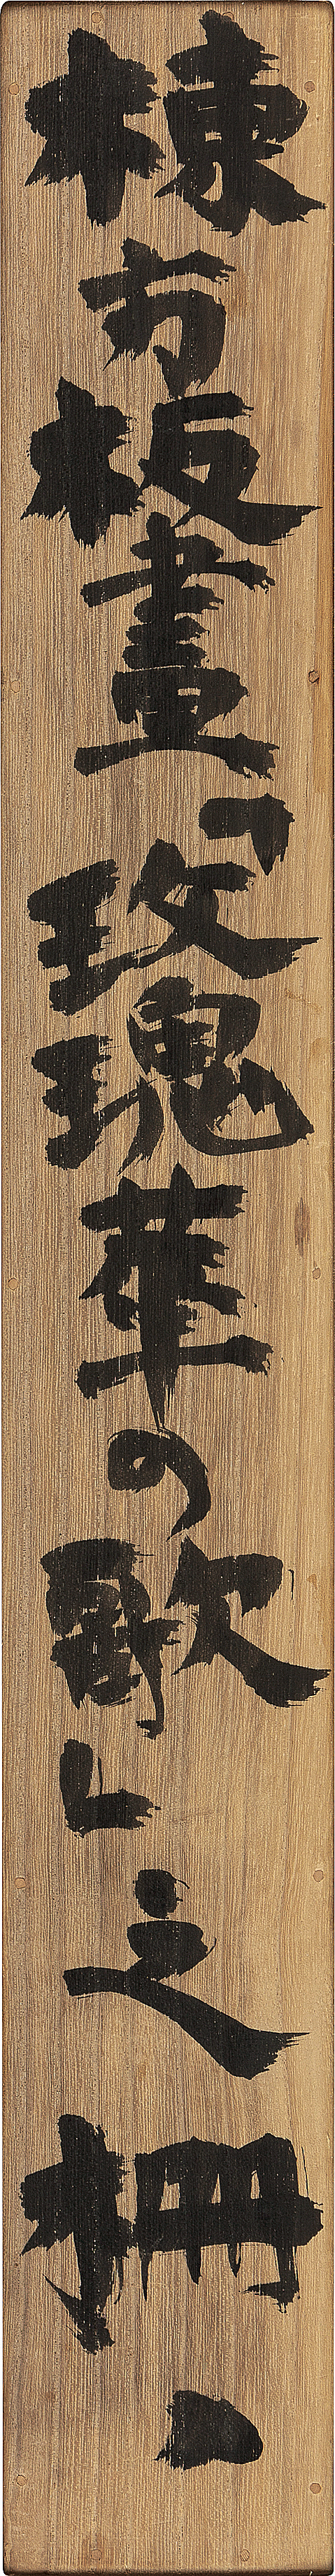 棟方板畫「玫瑰華の歌」之柵、